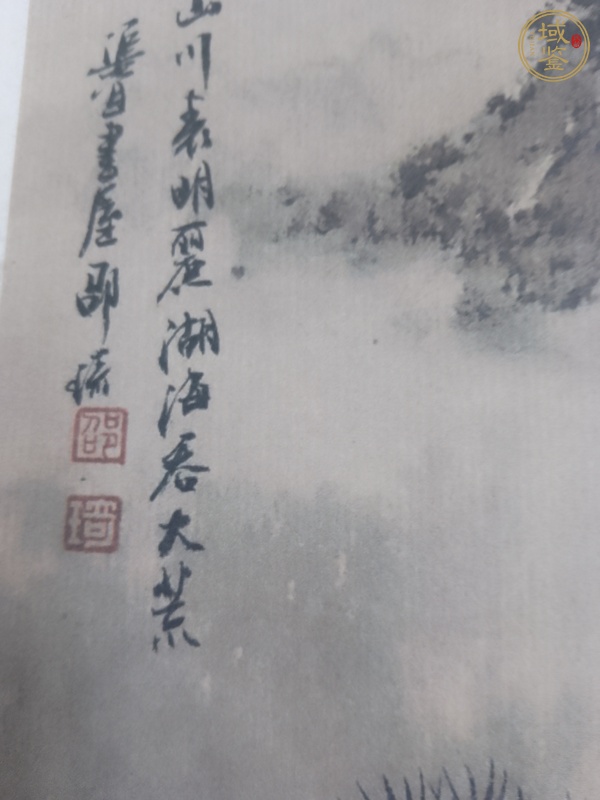 山川表明麗湖海吞大荒
書屋邵琦
邵
琦
域鉴